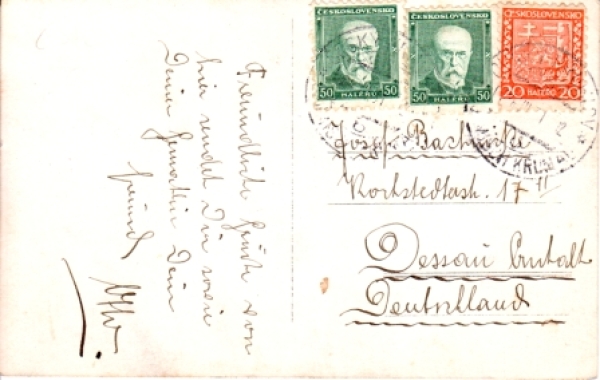 Freundliche Grüße von
hier sendet Dir sowie
Deiner Gemahlin Dein
Freund
Otto.
ČESKOSLOVENSKO
50 HALÉŘŮ 50
ČESKOSLOVENSKO
50 HALÉŘŮ 50
ČESKOSLOVENSKO
20 HALÉŘŮ 20
KRUML
Josef
17 II
Dessau Anhalt
Deutschland